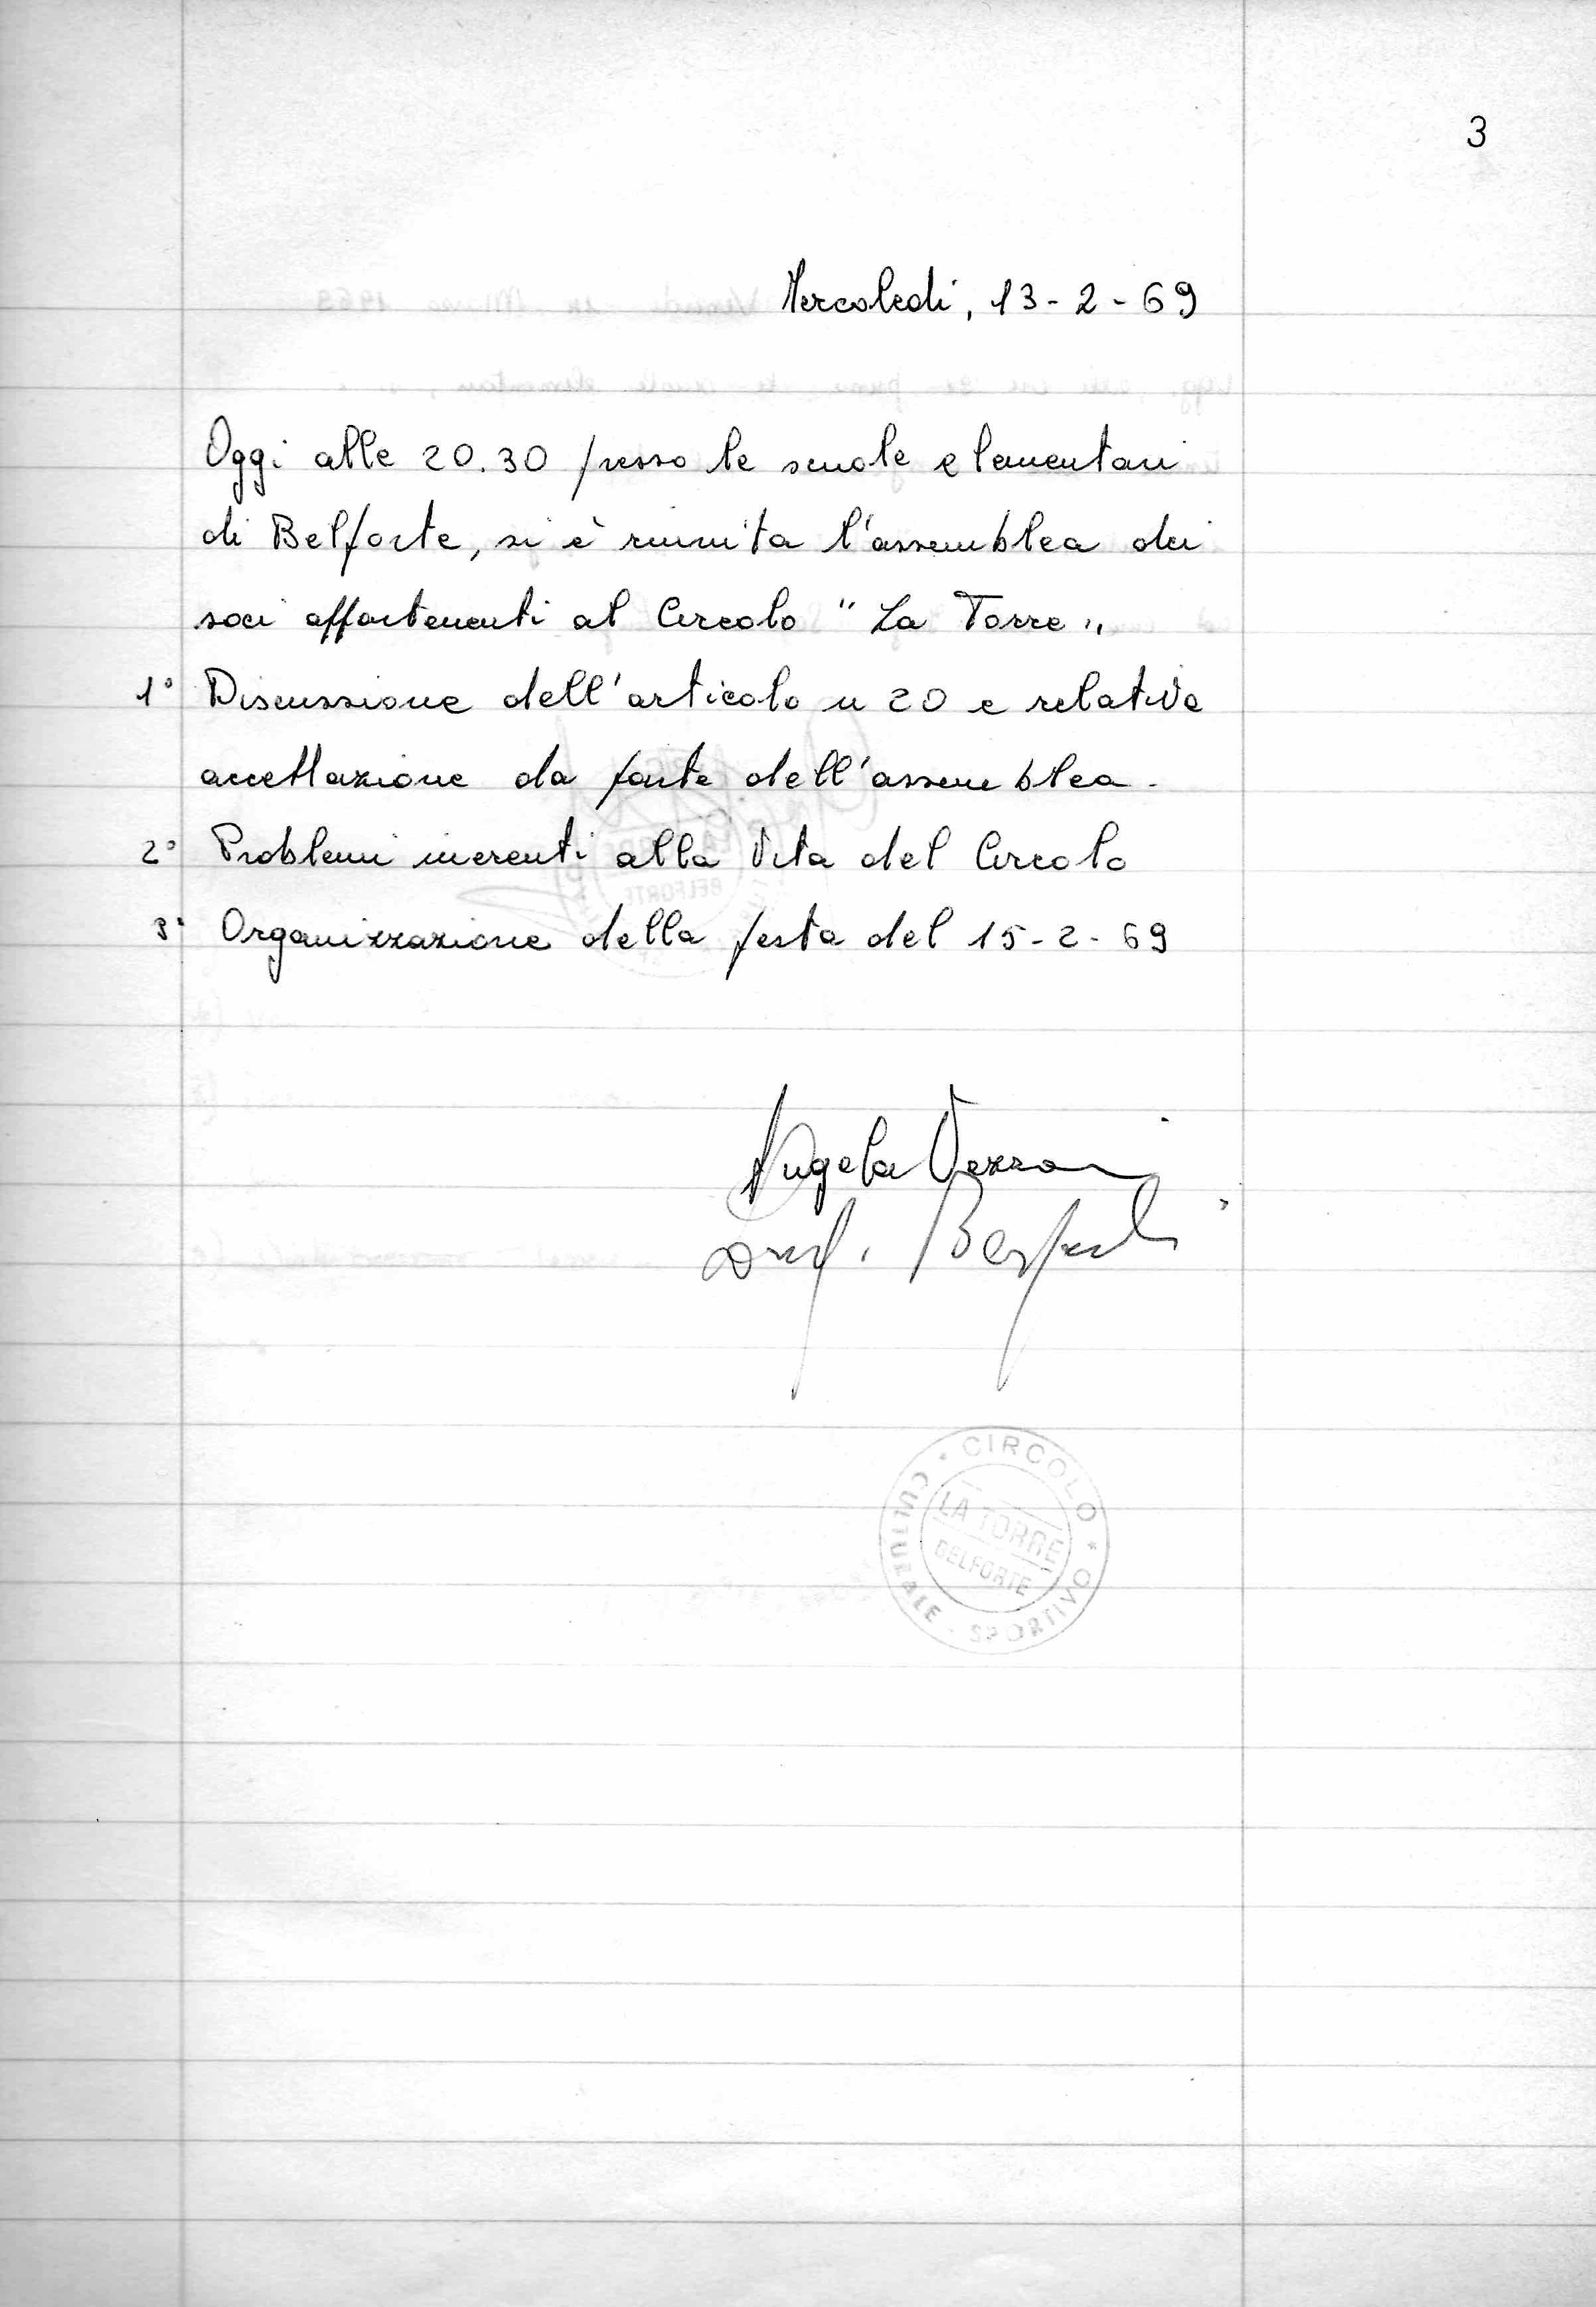 3
Mercoledi, 13-2-69
Oggi alle 20.30 presso le scuole elementari
di Belforte, si è riunita l'assemblea dei
soci appartenenti al Circolo "La Torre"
1° Discussione dell'articolo n 20 e relativa
accettazione da parte dell'assemblea.
2° Problemi inerenti alla Vita del Circolo
3° Organizzazione della festa del 15-2-69
Angela Vezzani
CIRCOLO * SPORTIVO - CULTURALE *
LA TORRE
BELFORTE